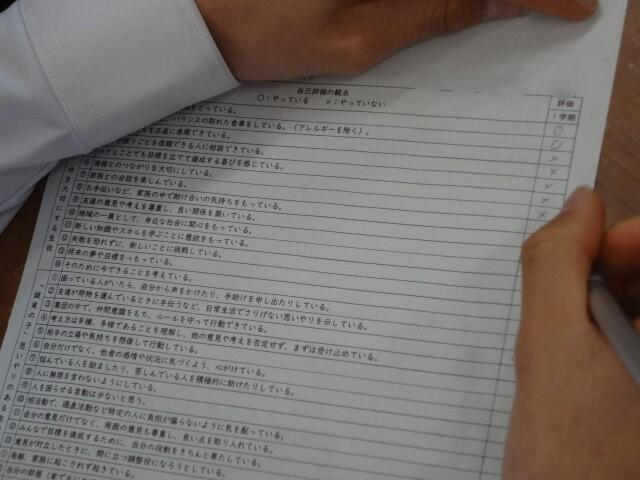 自己評価の観点
○：やっている　×：やっていない
評価
1学期
をとっている。
バランスの取れた食事をしている。（アレルギーを除く）。
を正直に表現できている。
困りごとを信頼できる人に相談できている。
なことでも目標を立てて達成する喜びを感じている。
⑥周囲とのつながりを大切にしている。
⑦家族との会話を楽しんでいる。
⑧お手伝いなど、家族の中で助け合いの気持ちをもっている。
⑨友達の意見や考えを尊重し、良い関係を築いている。
⑩地域の一員として、身近な社会に関心をもっている。
⑪新しい知識やスキルを学ぶことに意欲をもっている。
⑫失敗を恐れずに、新しいことに挑戦している。
⑬将来の夢や目標をもっている。
⑭そのために今できることを考えている。
大切にする生徒
①困っている人がいたら、自分から声をかけたり、手助けを申し出たりしている。
②友達が荷物を運んでいるときに手伝うなど、日常生活でさりげない思いやりを示している。
③集団の中で、仲間意識をもち、ルールを守って行動できている。
④考え方は多種、多様であることを理解し、他の意見や考えを否定せず、まずは受け止めている。
⑤相手の立場や気持ちを想像して行動している。
⑥自分だけでなく、他者の感情や状況に気づくよう、心がけている。
⑦悩んでいる人を励ましたり、苦しんでいる人を積極的に助けたりしている。
⑧人に無理を言わないようにしている。
⑨人を困らせる言動は少ないと思う。
⑩班活動で、過直活動など特定の人に負担が偏らないように気を配っている。
⑪自分の意見だけでなく、周囲の意見も尊重し、良い点を取り入れている。
⑫みんなで目標を達成するために、自分の役割をきちんと果たしている。
⑬意見が対立したときに、間に立つ調整役になろうとしている。
「誠実の子」思いやりのある
①毎朝、家族に起こされず起きている。
自分の部屋